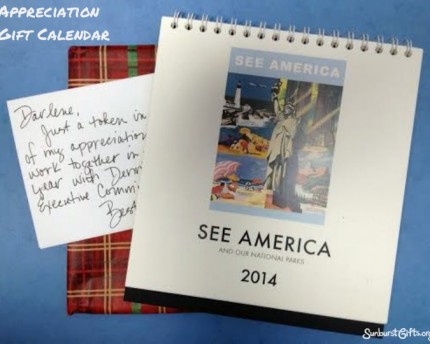 APPRECIATION
GIFT CALENDAR
Darlene,
Just a token in
of my appreciation
work together in
year with
Executive Commi
Best
SEE AMERICA
SEE AMERICA
AND OUR NATIONAL PARKS
2014
SunburstGifts.org